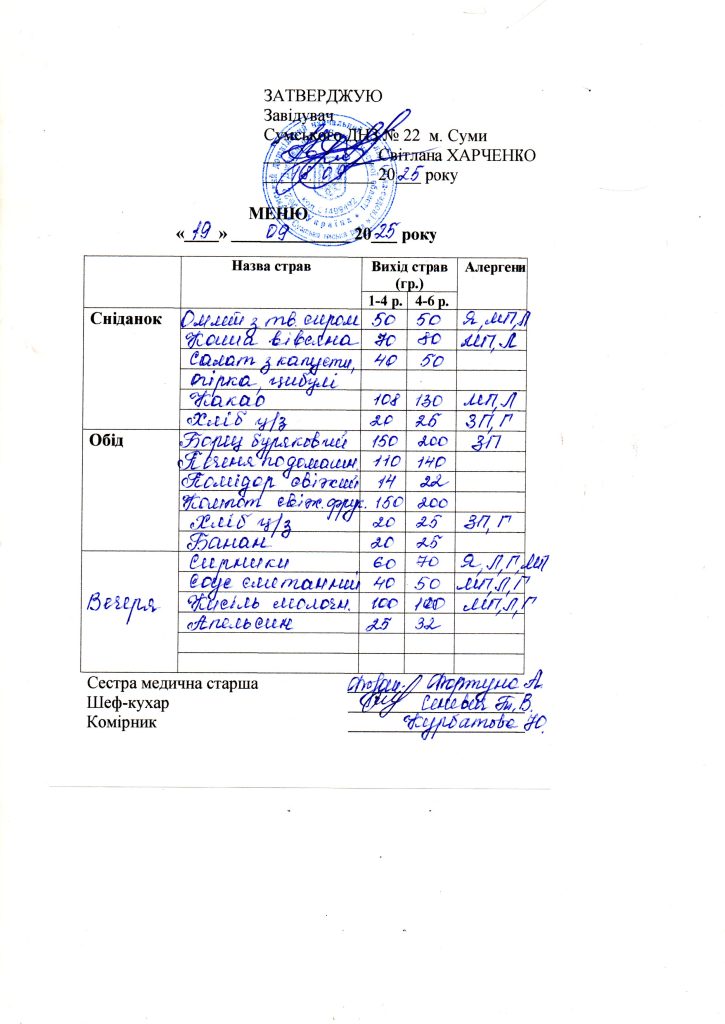 ЗАТВЕРДЖУЮ
Завідувач
Сумського ДНЗ № 22 м. Суми
Світлана ХАРЧЕНКО
18 09 2025 року
МЕНЮ
«19» 09 2025 року
Назва страв Вихід страв (гр.) Алергени
1-4 р. 4-6 р.
Сніданок Омлет з тв. сиром 50 50 Я, МП, Л
Каша вівсяна 70 80 МП, Л
Салат з капусти, 40 50
огірка, цибулі
Какао 108 130 МП, Л
Хліб ц/з 20 25 ЗП, Г
Обід Борщ буряковий 150 200 ЗП
Печеня по домашн. 110 140
Помідор свіжий 14 22
Компот свіж. фрук. 150 200
Хліб ц/з 20 25 ЗП, Г
Банан 20 25
Вечеря Сирники 60 70 Я, Л, Г, МП
Соус сметанний 40 50 МП, Л, Г
Кисіль молочн. 100 МП, Л, Г
Апельсин 25 32
Сестра медична старша Фортуна А.
Шеф-кухар
Комірник Курбатова Ю.